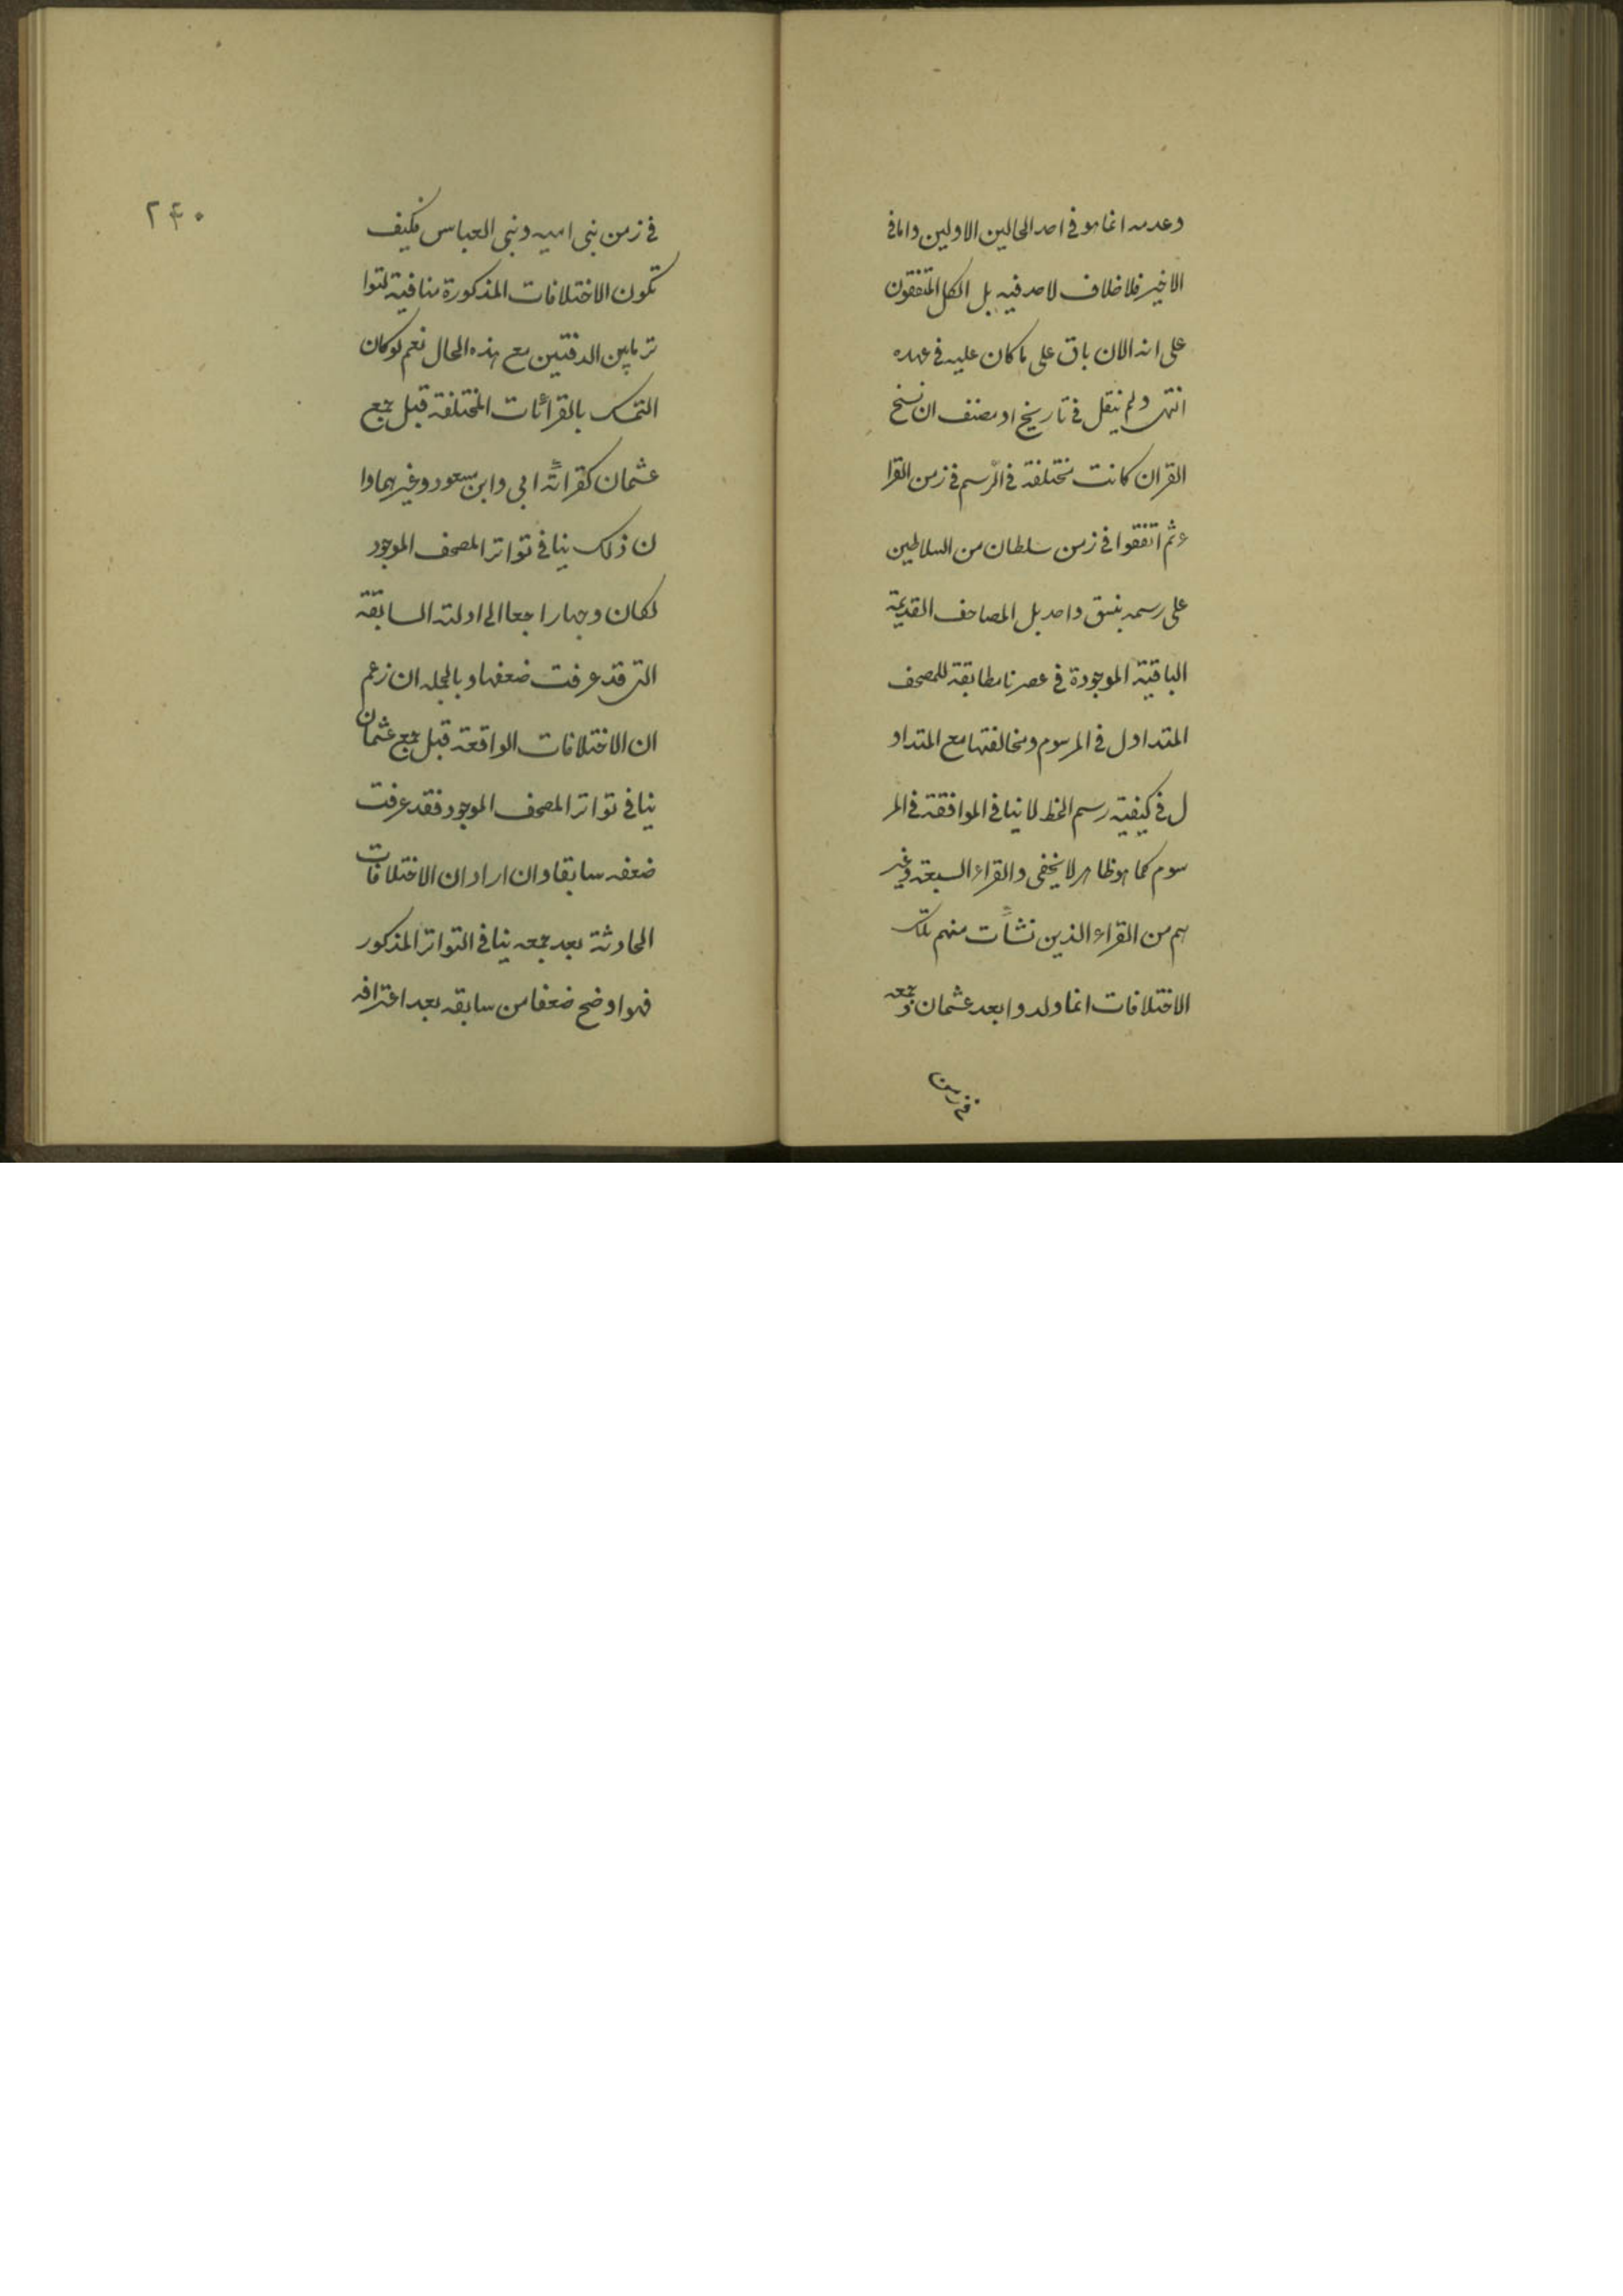 وعدمه انما هو فی احد الحالین الاولین واما فی
الاخیر فلا خلاف لاحد فیه بل الکل المتفقون
علی انه الان باق علی ما کان علیه فی عهده
انتهی ولم ینقل فی تاریخ او مصنف ان نسخ
القران کانت مختلفة فی الرسم فی زمن القرا
ء ثم اتفقوا فی زمن سلطان من السلاطین
علی رسمه بنسق واحد بل المصاحف القدیمة
الباقیة الموجودة فی عصرنا مطابقة للمصحف
المتداول فی المرسوم ومخالفتها مع المتداو
ل فی کیفیة رسم الخط لا ینافی الموافقة فی المر
سوم کما هو ظاهر لا یخفی والقراء السبعة وغیر
هم من القراء الذین نشأت منهم تلک
الاختلافات انما ولدوا بعد عثمان وجمعه
فی زمن
۲۴۰
فی زمن بنی امیه و بنی العباس فکیف
تکون الاختلافات المذکورة منافیة لتوا
تر ما بین الدفتین مع هذه الحال نعم لو کان
التمسک بالقرأئات المختلفة قبل جمع
عثمان کقرائة ابی وابن مسعود وغیرهما وا
ن ذلک ینافی تواتر المصحف الموجود
لکان وجها راجعا الی ادلته السابقة
التی قد عرفت ضعفها وبالجمله ان زعم
ان الاختلافات الواقعة قبل جمع عثمان
ینافی تواتر المصحف الموجود فقد عرفت
ضعفه سابقا وان اراد ان الاختلافات
الحادثة بعد جمعه ینافی التواتر المذکور
فهو اوضح ضعفا من سابقه بعد اعترافه